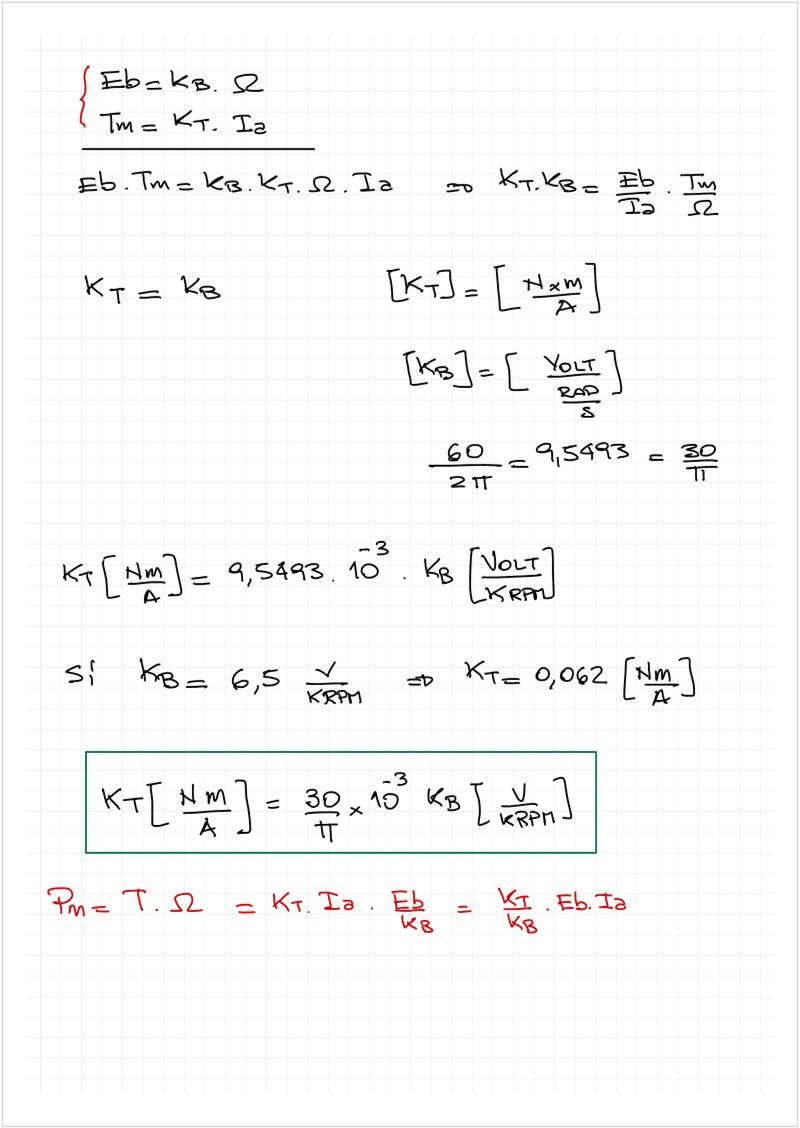 Eb = KB. Ω
Tm = KT. Ia
Eb. Tm = KB. KT. Ω. Ia ⇒ KT. KB = Eb/Ia . Tm/Ω
KT = KB [KT] = [N x m/A]
[KB] = [VOLT/(RAD/S)]
60/2π = 9,5493 = 30/π
KT [Nm/A] = 9,5493 . 10^-3 . KB [VOLT/KRPM]
Sí KB = 6,5 V/KRPM ⇒ KT = 0,062 [Nm/A]
KT [Nm/A] = 30/π x 10^-3 KB [V/KRPM]
Pm = T. Ω = KT. Ia . Eb/KB = KT/KB . Eb. Ia